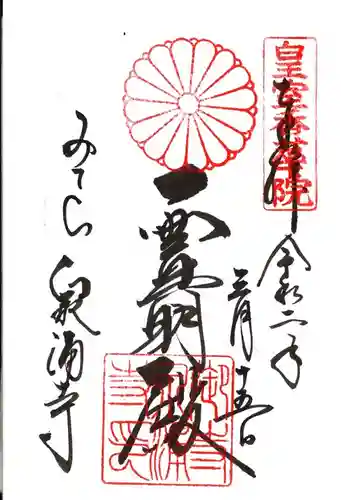 皇室香華院
奉拝
令和二年
三月十五日
霊明殿
みてら
泉涌寺